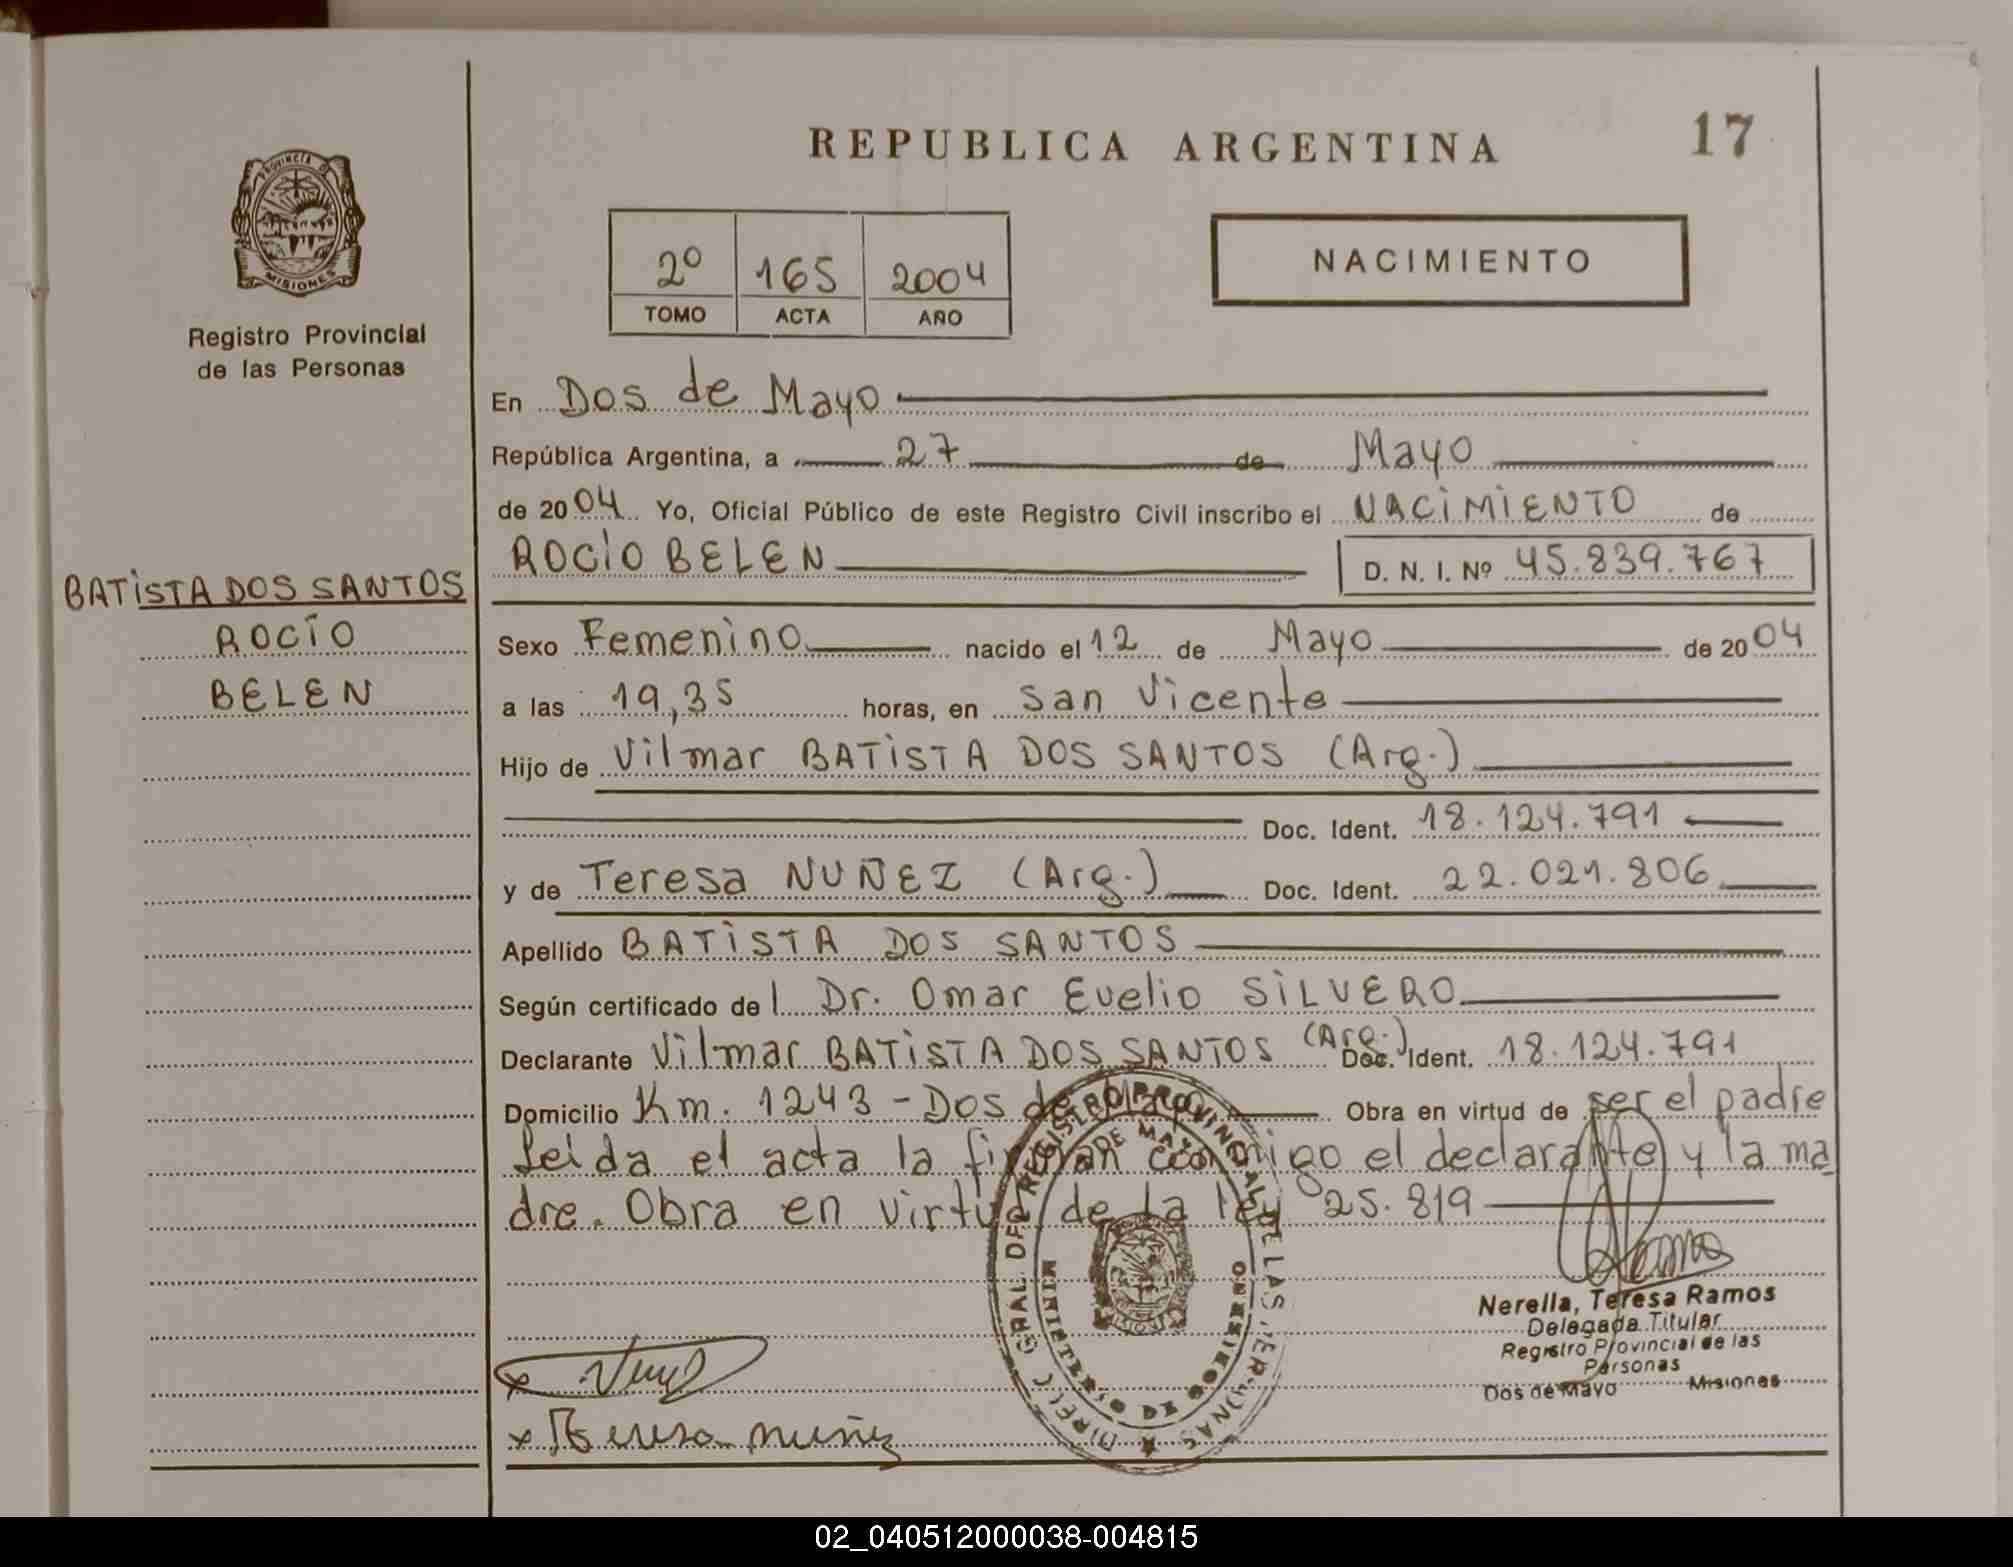 REPUBLICA ARGENTINA
17
PROVINCIA DE
MISIONES
Registro Provincial
de las Personas
2º 165 2004
TOMO ACTA AÑO
NACIMIENTO
En Dos de Mayo
República Argentina, a 27 de Mayo
de 2004 Yo, Oficial Público de este Registro Civil inscribo el NACIMIENTO de
ROCIO BELEN D. N. I. Nº 45.839.767
BATISTA DOS SANTOS
ROCÍO
BELEN
Sexo Femenino nacido el 12 de Mayo de 2004
a las 19,35 horas, en San Vicente
Hijo de Vilmar BATISTA DOS SANTOS (Arg.)
Doc. Ident. 18.124.791
y de Teresa NUÑEZ (Arg.) Doc. Ident. 22.021.806
Apellido BATISTA DOS SANTOS
Según certificado del Dr. Omar Evelio SILVERO
Declarante Vilmar BATISTA DOS SANTOS (Arg.) Doc. Ident. 18.124.791
Domicilio Km. 1243 - Dos de Mayo Obra en virtud de ser el padre
Leida el acta la firman conmigo el declarante y la ma
dre. Obra en virtud de la ley 25.819
DIREC. GRAL. DEL REGISTRO PROVINCIAL DE LAS PERSONAS
DOS DE MAYO
MINISTERIO DE GOBIERNO
Nerella, Teresa Ramos
Delegada Titular
Registro Provincial de las
Personas
Dos de Mayo Misiones
x
x Teresa nuñez
02_040512000038-004815